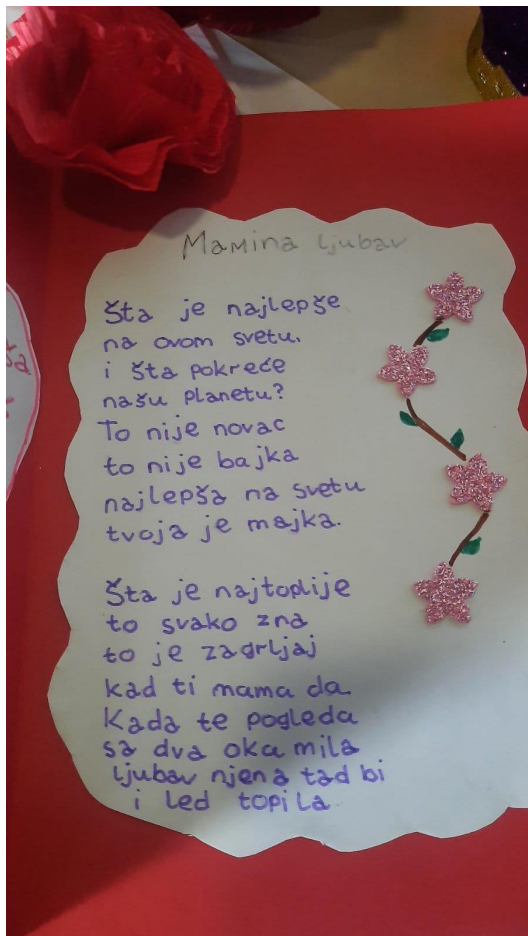 Mamina ljubav
Šta je najlepše
na ovom svetu,
i šta pokreće
našu planetu?
To nije novac
to nije bajka
najlepša na svetu
tvoja je majka.
Šta je najtoplije
to svako zna
to je zagrljaj
kad ti mama da.
Kada te pogleda
sa dva oka mila
ljubav njena tad bi
i led topila